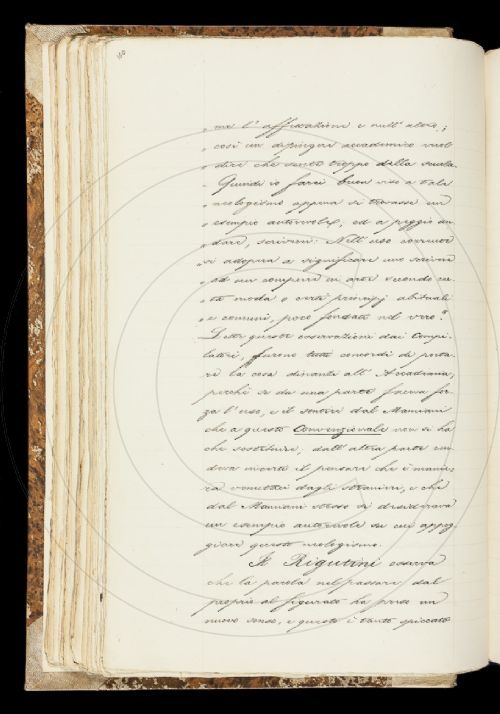 160
„ mai l'affettazione e null'altro;
„ così un dipingere accademico vuol
„ dire che sente troppo della scuola.
„ Quindi io farei buon viso a tale
„ neologismo appena si trovasse un
„ esempio autorevole, ed a peggio an-
„ dare, scriverei: Nell'uso corrente
„ si adopera a significare uno scrivere
„ od un comporre in arte secondo cer-
„ te moda o certi principj abituali
„ e comuni, poco fondati nel vero".
Lette queste osservazioni dai Compi-
latori, furono tutti concordi di porta-
re la cosa dinanzi all'Accademia,
perchè se da una parte faceva for-
za l'uso, e il sentire dal Mamiani
che a questo Convenzionale non si ha
che sostituire, dall'altra parte ren-
deva incerti il pensare che è manie-
ra venutaci dagli stranieri, e che
dal Mamiani stesso si desiderava
un esempio autorevole su cui appog-
giare questo neologismo.
Il Rigutini osserva
che la parola nel passare dal
proprio al figurato ha preso un
nuovo senso, e questo è tanto spiccato